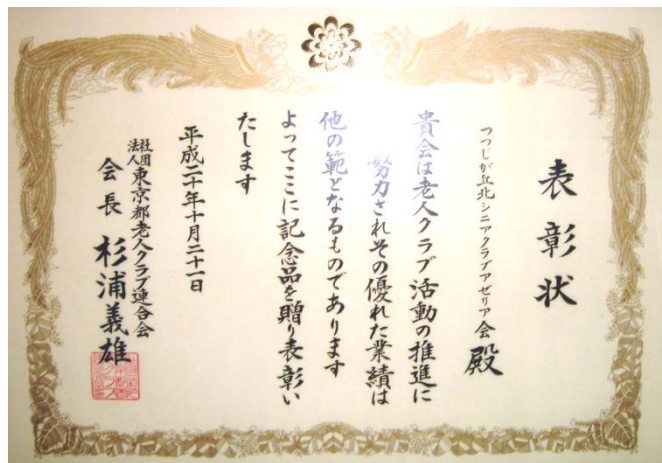 表彰状
つつじが丘北シニアクラブアゼリア会 殿
貴会は老人クラブ活動の推進に
努力されその優れた業績は
他の範となるものであります
よってここに記念品を贈り表彰い
たします
平成二十年十月二十一日
社団法人東京都老人クラブ連合会
会長 杉浦義雄